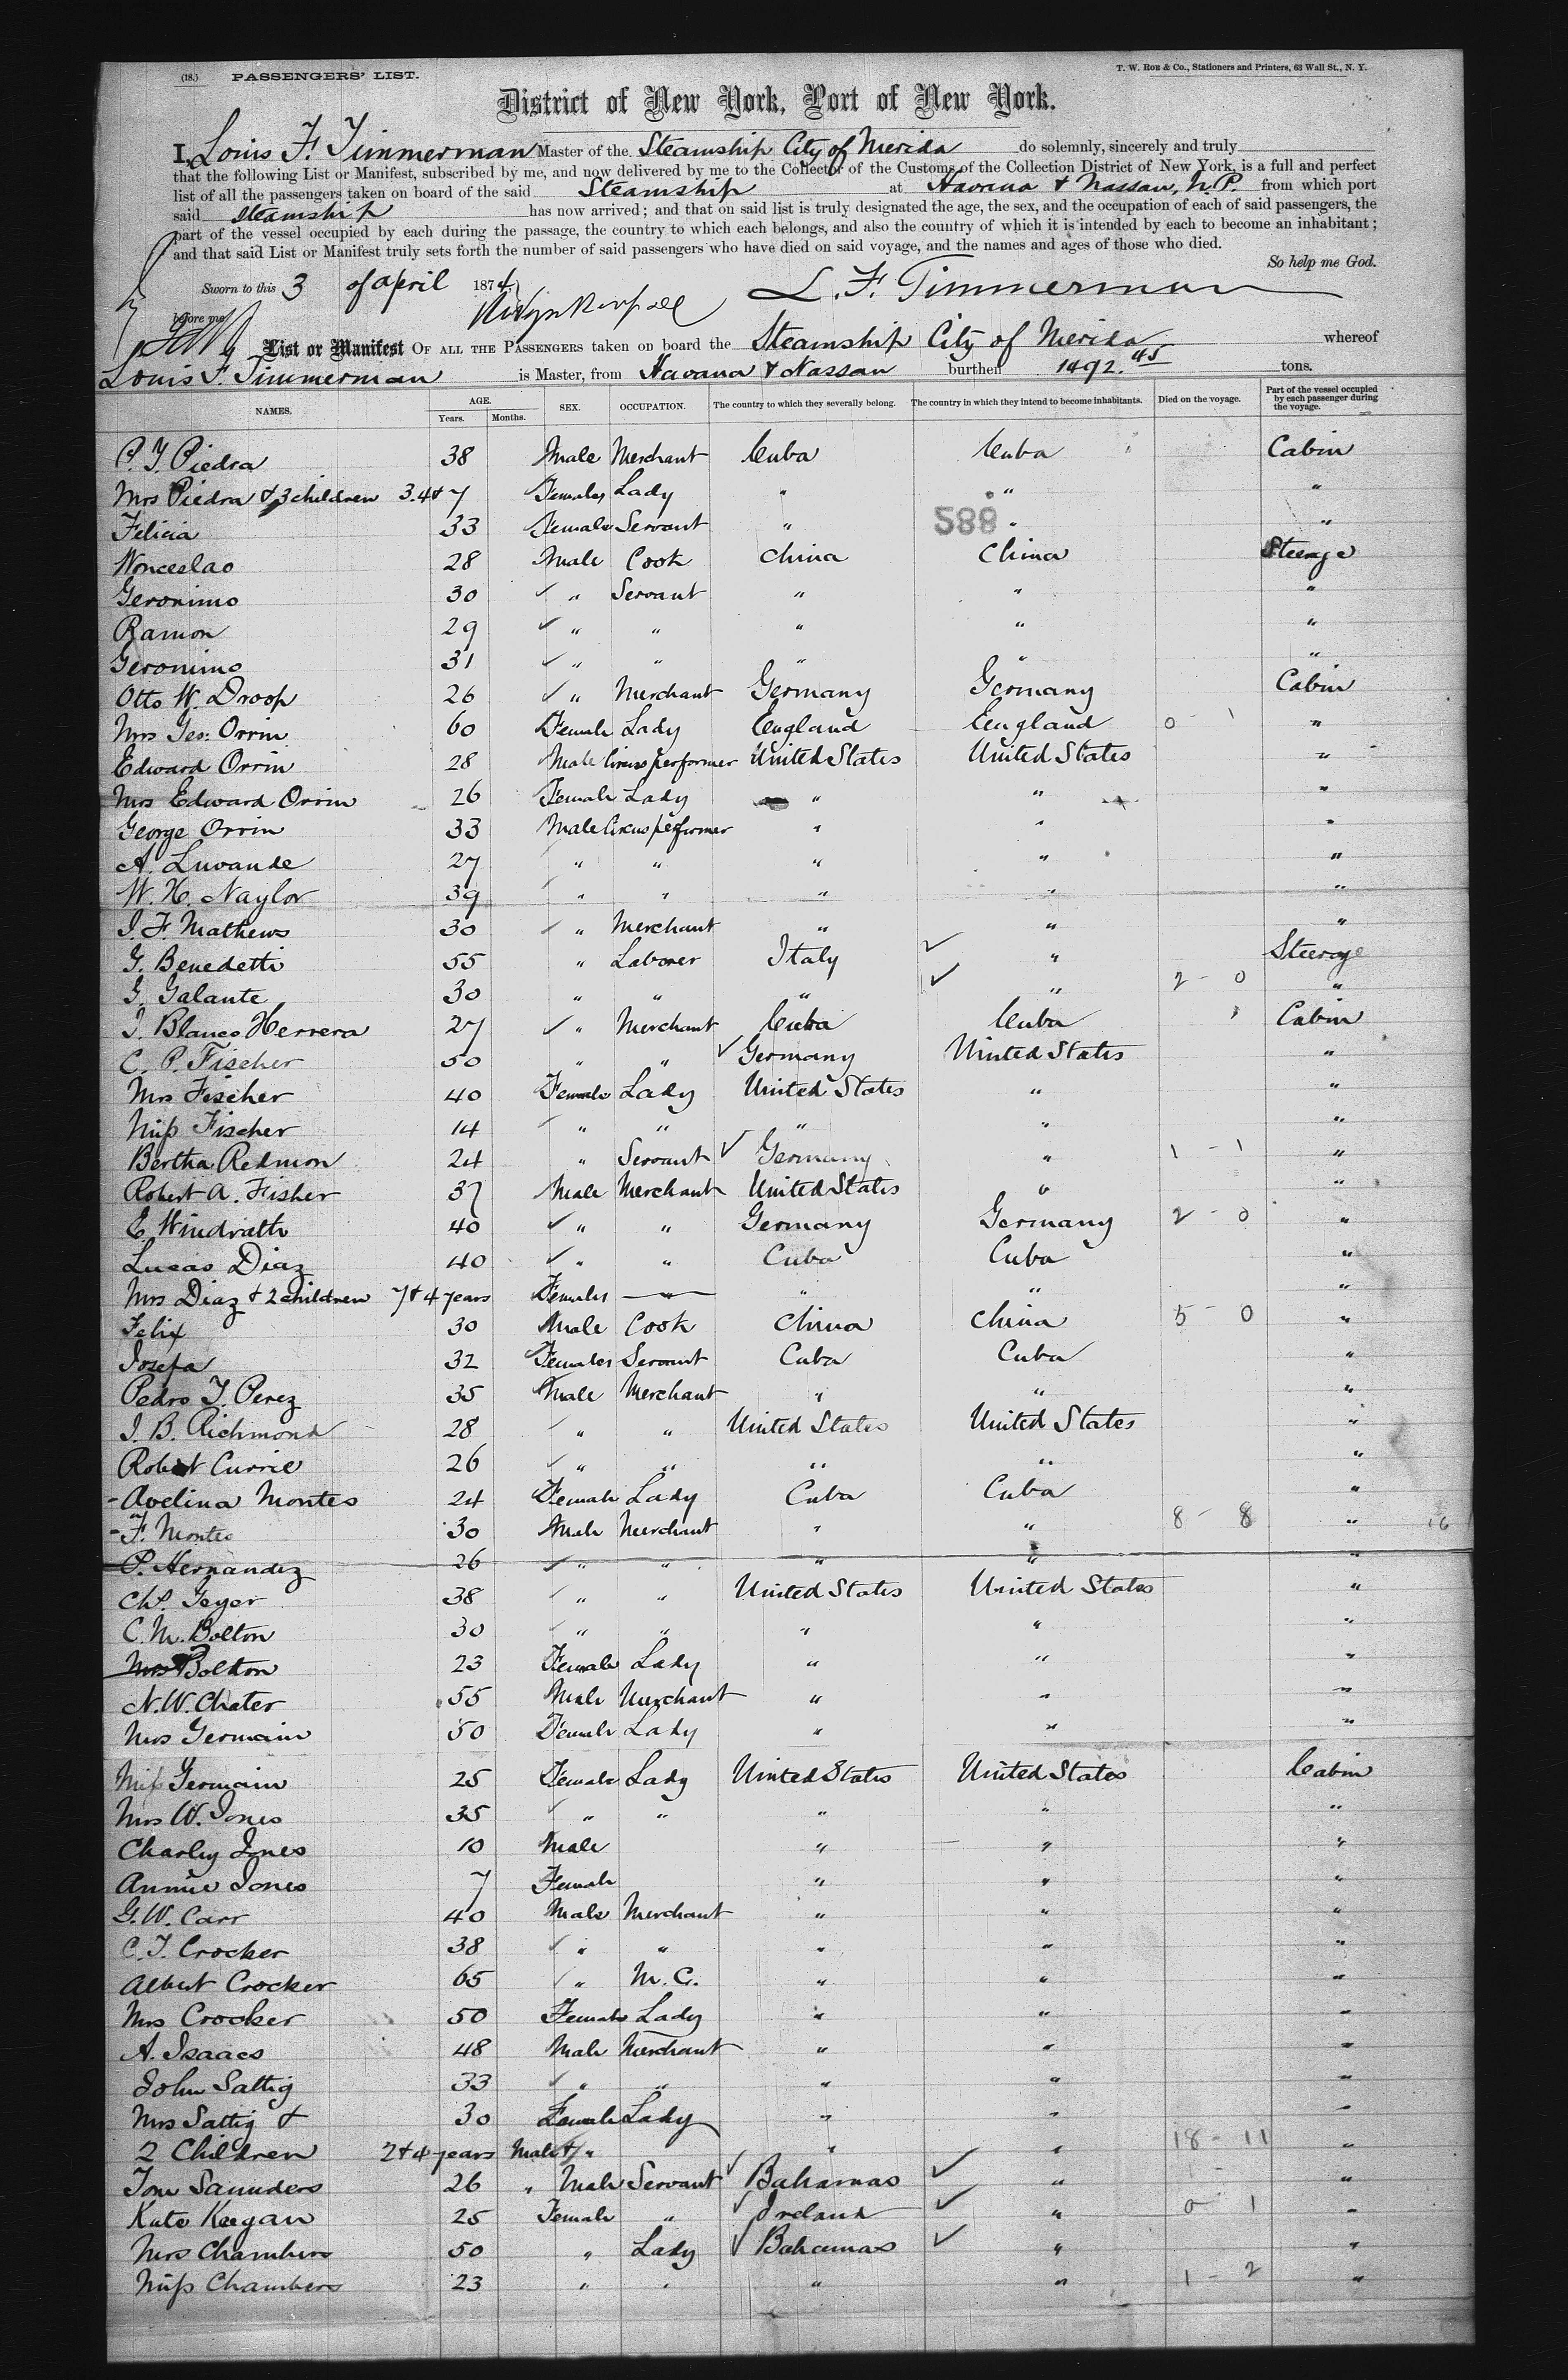 (18.) PASSENGERS' LIST. T. W. ROE & Co., Stationers and Printers, 63 Wall St., N. Y.
District of New York, Port of New York.
I, Louis F. Timmerman Master of the Steamship City of Merida do solemnly, sincerely and truly
that the following List or Manifest, subscribed by me, and now delivered by me to the Collector of the Customs of the Collection District of New York, is a full and perfect
list of all the passengers taken on board of the said Steamship at Havana & Nassau, N.P. from which port
said Steamship has now arrived; and that on said list is truly designated the age, the sex, and the occupation of each of said passengers, the
part of the vessel occupied by each during the passage, the country to which each belongs, and also the country of which it is intended by each to become an inhabitant;
and that said List or Manifest truly sets forth the number of said passengers who have died on said voyage, and the names and ages of those who died.
So help me God.
Sworn to this 3 of april 1874 L. F. Timmerman
before me
List or Manifest OF ALL THE PASSENGERS taken on board the Steamship City of Merida whereof
Louis F. Timmerman is Master, from Havana & Nassau burthen 1492.45 tons.
NAMES. AGE. Years. Months. SEX. OCCUPATION. The country to which they severally belong. The country in which they intend to become inhabitants. Died on the voyage. Part of the vessel occupied by each passenger during the voyage.
P. Y. Piedra 38 Male Merchant Cuba Cuba Cabin
Mrs Piedra & 3 children 3.4 & 7 Females Lady " " "
Felicia 33 Female Servant " 588 " "
Wonceslao 28 Male Cook China China Steerage
Geronimo 30 " Servant " " "
Ramon 29 " " " " "
Geronimo 31 " " " " "
Otto W. Droop 26 " Merchant Germany Germany Cabin
Mrs Geo. Orrin 60 Female Lady England England 0 - 1 "
Edward Orrin 28 Male Circus performer United States United States "
Mrs Edward Orrin 26 Female Lady " " "
George Orrin 33 Male Circus performer " " "
A. Luvande 27 " " " " "
W. H. Naylor 39 " " " " "
J. F. Mathews 30 " Merchant " " "
G. Benedetti 55 " Laborer Italy " Steerage
G. Galante 30 " " " " 2 - 0 "
J. Blanco Herrera 27 " Merchant Cuba Cuba Cabin
C. P. Fischer 50 " " Germany United States "
Mrs Fischer 40 Female Lady United States " "
Miss Fischer 14 " " " " "
Bertha Redmon 24 " Servant Germany " 1 - 1 "
Robert A. Fisher 37 Male Merchant United States " "
E. Windrath 40 " " Germany Germany 2 - 0 "
Lucas Diaz 40 " " Cuba Cuba "
Mrs Diaz & 2 children 7 & 4 years Females " " " "
Felix 30 Male Cook China China 5 - 0 "
Josefa 32 Females Servant Cuba Cuba "
Pedro Y. Perez 35 Male Merchant " " "
J. B. Richmond 28 " " United States United States "
Robert Currie 26 " " " " "
Avelina Montes 24 Female Lady Cuba Cuba "
F. Montes 30 Male Merchant " " 8 - 8 " 16
P. Hernandez 26 " " " " "
Chs. Geyer 38 " " United States United States "
C. M. Bolton 30 " " " " "
Mrs Bolton 23 Female Lady " " "
N. W. Chater 55 Male Merchant " " "
Mrs Germain 50 Female Lady " " "
Miss Germain 25 Female Lady United States United States Cabin
Mrs W. Jones 35 " " " " "
Charley Jones 10 Male " " "
Annie Jones 7 Female " " "
G. W. Carr 40 Male Merchant " " "
C. T. Crocker 38 " " " " "
Albert Crocker 65 " M. C. " " "
Mrs Crocker 50 Female Lady " " "
A. Isaacs 48 Male Merchant " " "
John Sattig 33 " " " " "
Mrs Sattig & 30 Female Lady " " "
2 Children 2 & 4 years Male & " " " 18 - 11 "
Tom Saunders 26 " Male Servant Bahamas " "
Kate Keegan 25 Female " Ireland " 0 1 "
Mrs Chambers 50 " Lady Bahamas " "
Miss Chambers 23 " " " " 1 - 2 "